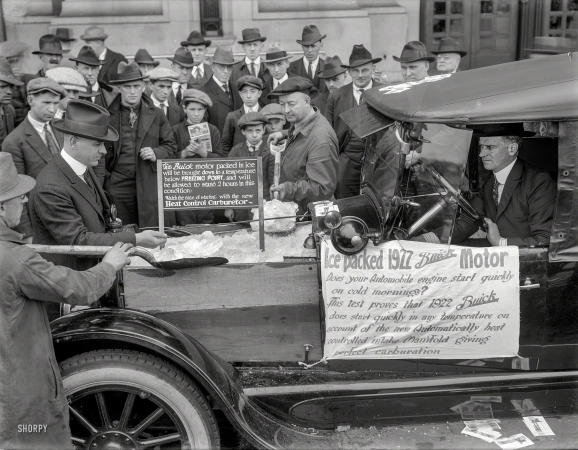 This Buick motor packed in ice
will be brought down to a temperature
below FREEZING POINT, and will
be allowed to stand 2 hours in this
condition.
Watch the rate of starting
with the new
Heat Control Carburetor
Ice packed 1922 Buick Motor
Does your Automobile engine start quickly
on cold mornings?
This test proves that 1922 Buick
does start quickly in any temperature on
account of the new Automatically heat
controlled intake Manifold giving
perfect carburation
SHORPY